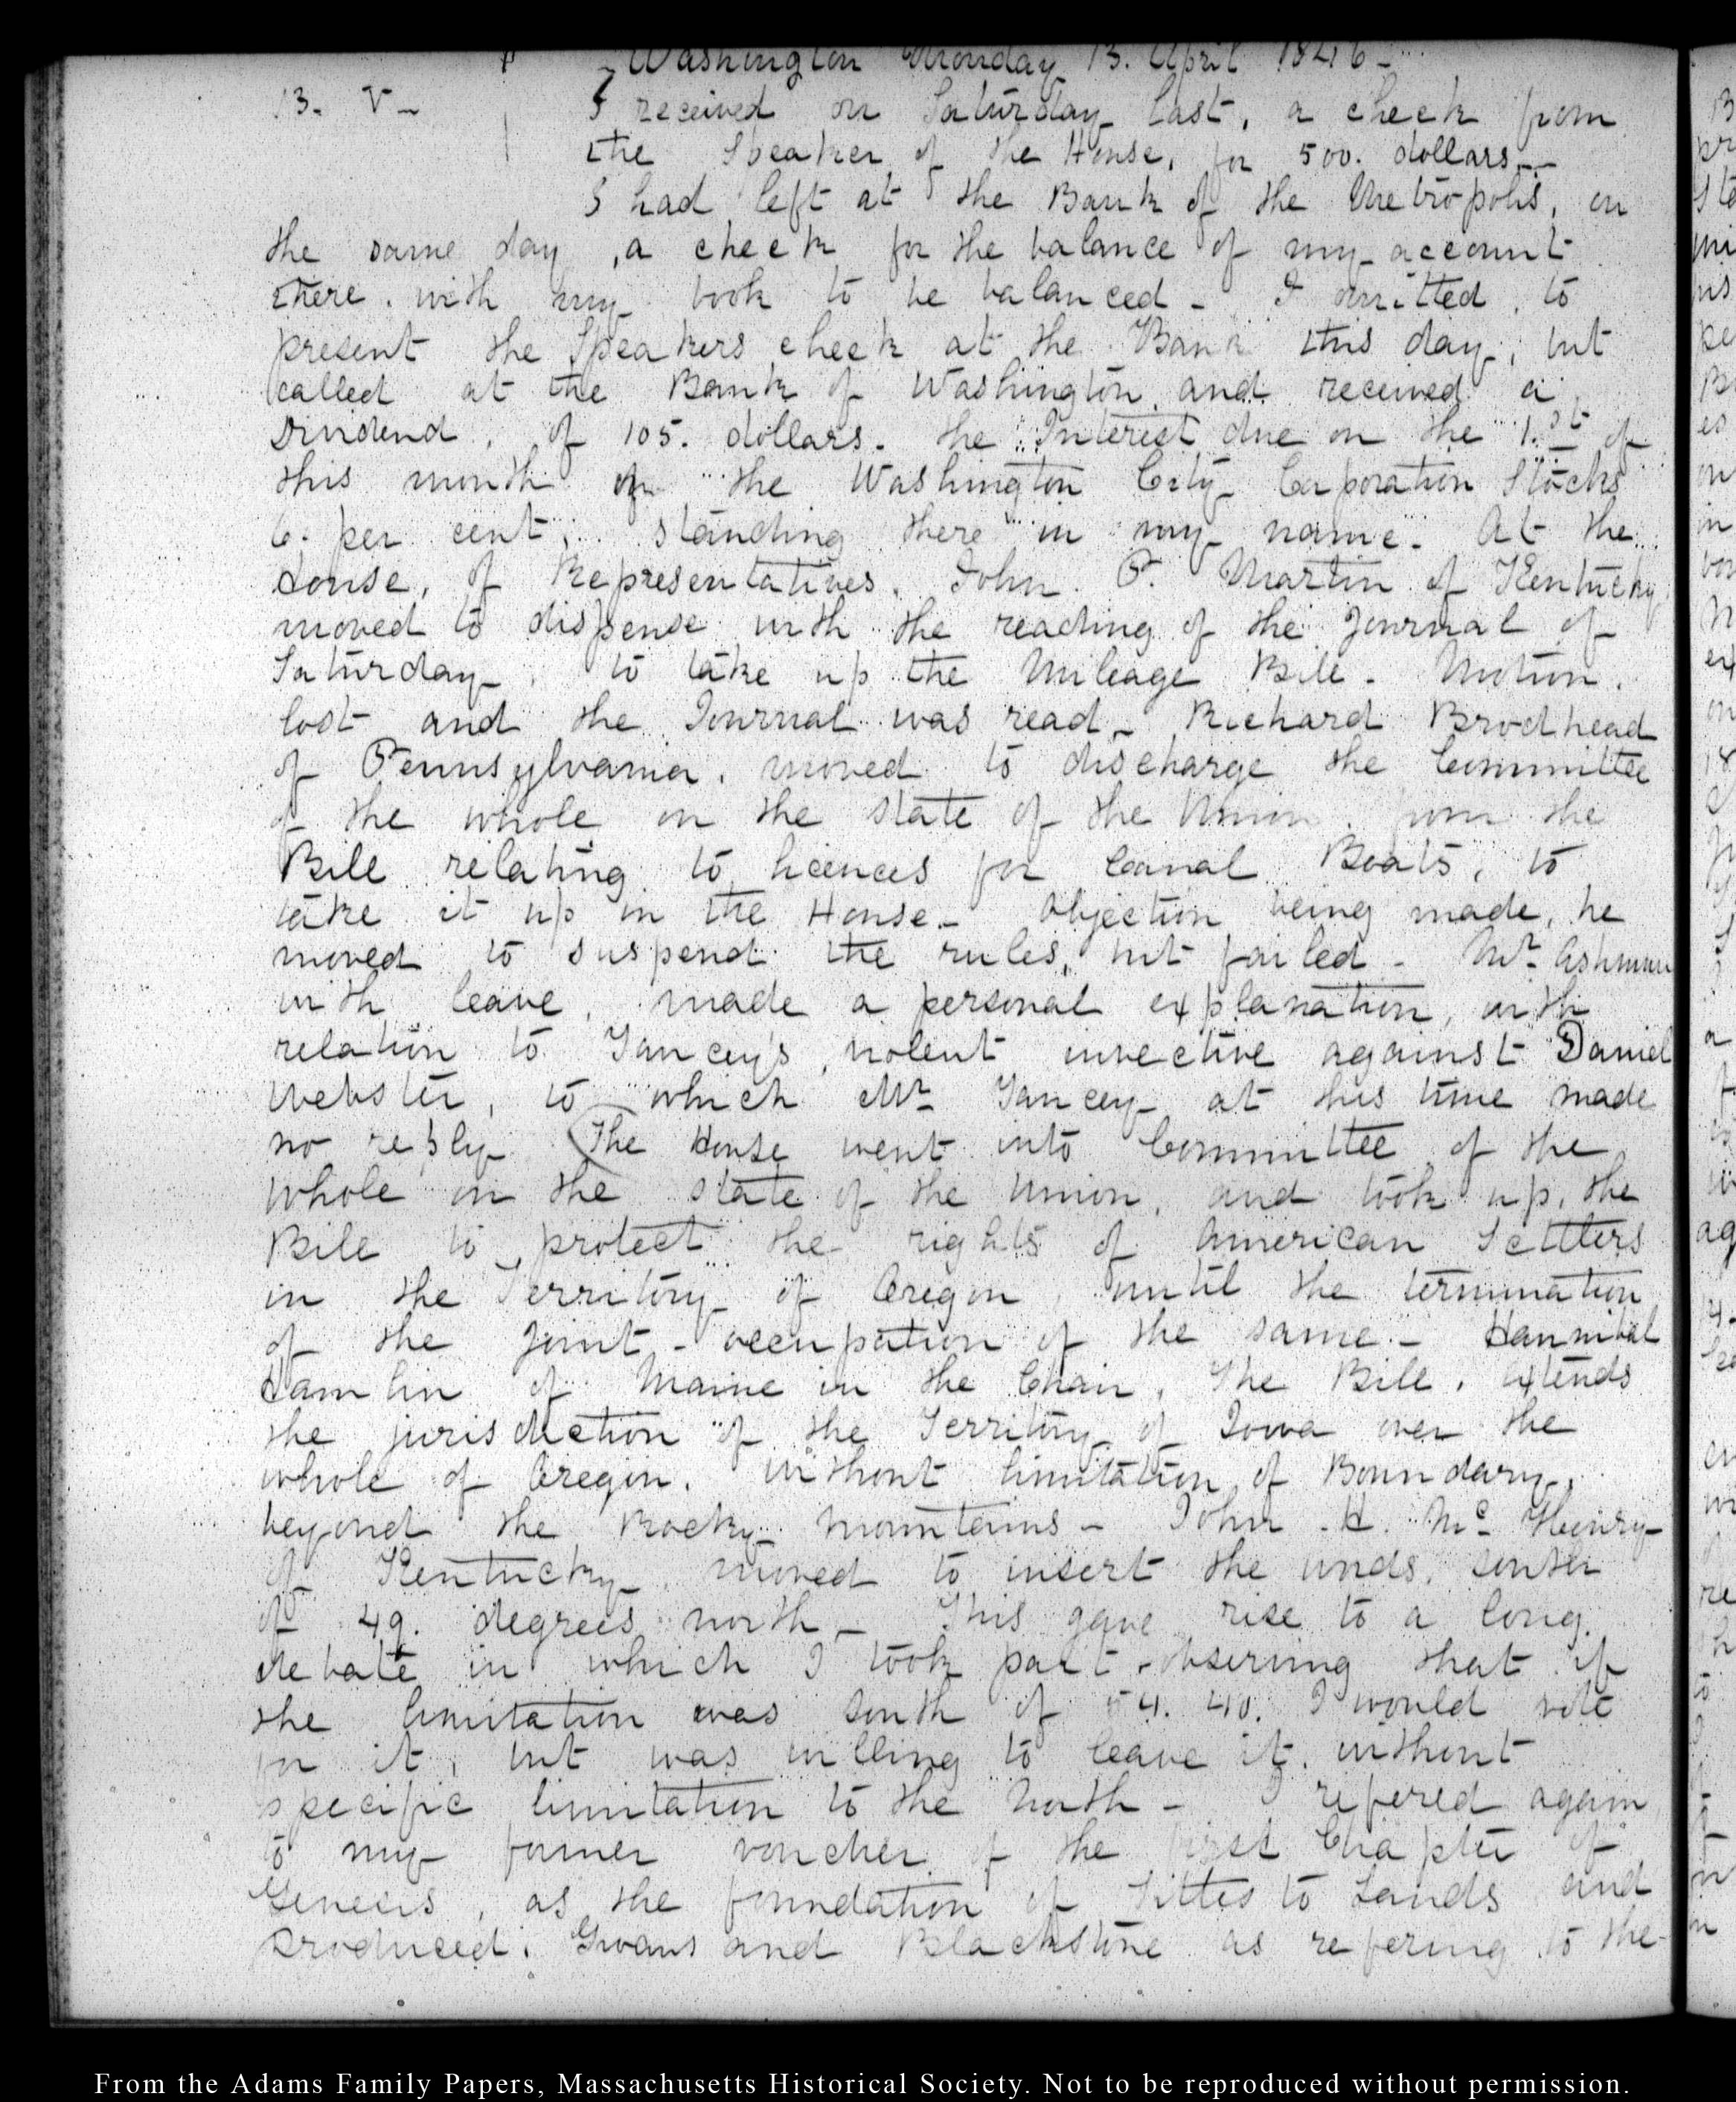 Washington Monday 13. April 1846-
13. V- I received on Saturday last, a check from
the Speaker of the House, for 500. dollars--
I had left at the Bank of the Metropolis, on
the same day, a check for the balance of my account
there. with my book to be balanced- I omitted, to
present the Speakers check at the Bank this day, but
called at the Bank of Washington, and received a
Dividend, of 105. dollars. the Interest due on the 1.st of
this month on the Washington City Corporation Stocks
6. per cent, standing there in my name. At the
House, of Representatives, John P. Martin of Kentucky
moved to dispense with the reading of the Journal of
Saturday, to take up the Mileage Bill- Motion.
lost and the Journal was read- Richard Brodhead
of Pennsylvania, moved to discharge the Committee
of the whole on the state of the Union, from the
Bill relating to licences for Canal Boats, to
take it up in the House- Objection being made, he
moved to suspend the rules, but failed- Mr. Ashmun
with leave, made a personal explanation, with
relation to Yancey's violent invective against Daniel
Webster, to which Mr Yancey at this time made
no reply (The House went into Committee of the
whole on the state of the Union, and took up, the
Bill to protect the rights of American Settlers
in the Territory of Oregon, until the termination
of the joint-occupation of the same- Hannibal
Hamlin of Maine in the Chair, The Bill, extends
the jurisdiction of the Territory of Iowa over the
whole of Oregon, without limitation of Boundary,
beyond the Rocky Mountains- John H. Mc Henry
of Kentucky, moved to insert the words, south
of 49. degrees north- This gave rise to a long
debate in which I took part-observing that if
the limitation was South of 54. 40. I would vote
for it, but was willing to leave it, without
specific limitation to the North- I refered again
to my former voucher, of the first Chapter of
Genesis, as the foundation of Titles to Lands and
produced, and Blackstone as refering to the
From the Adams Family Papers, Massachusetts Historical Society. Not to be reproduced without permission.